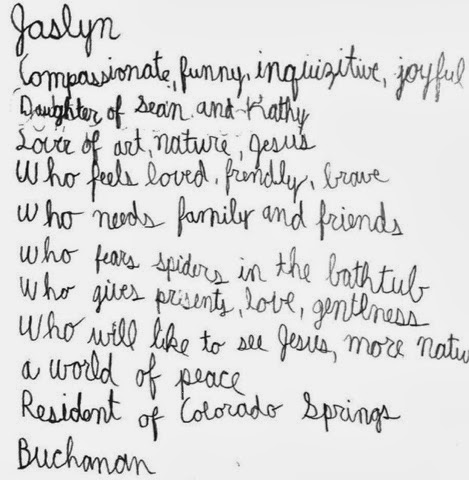 Jaslyn
Compassionate, funny, inquizitive, joyful
Daughter of Sean and Kathy
Lover of art, nature, Jesus
Who feels loved, frendly, brave
Who needs family and friends
Who fears spiders in the bathtub
Who gives prisents, love, gentlness
Who will like to see Jesus, more natu
a world of peace
Resident of Colorado Springs
Buchanan